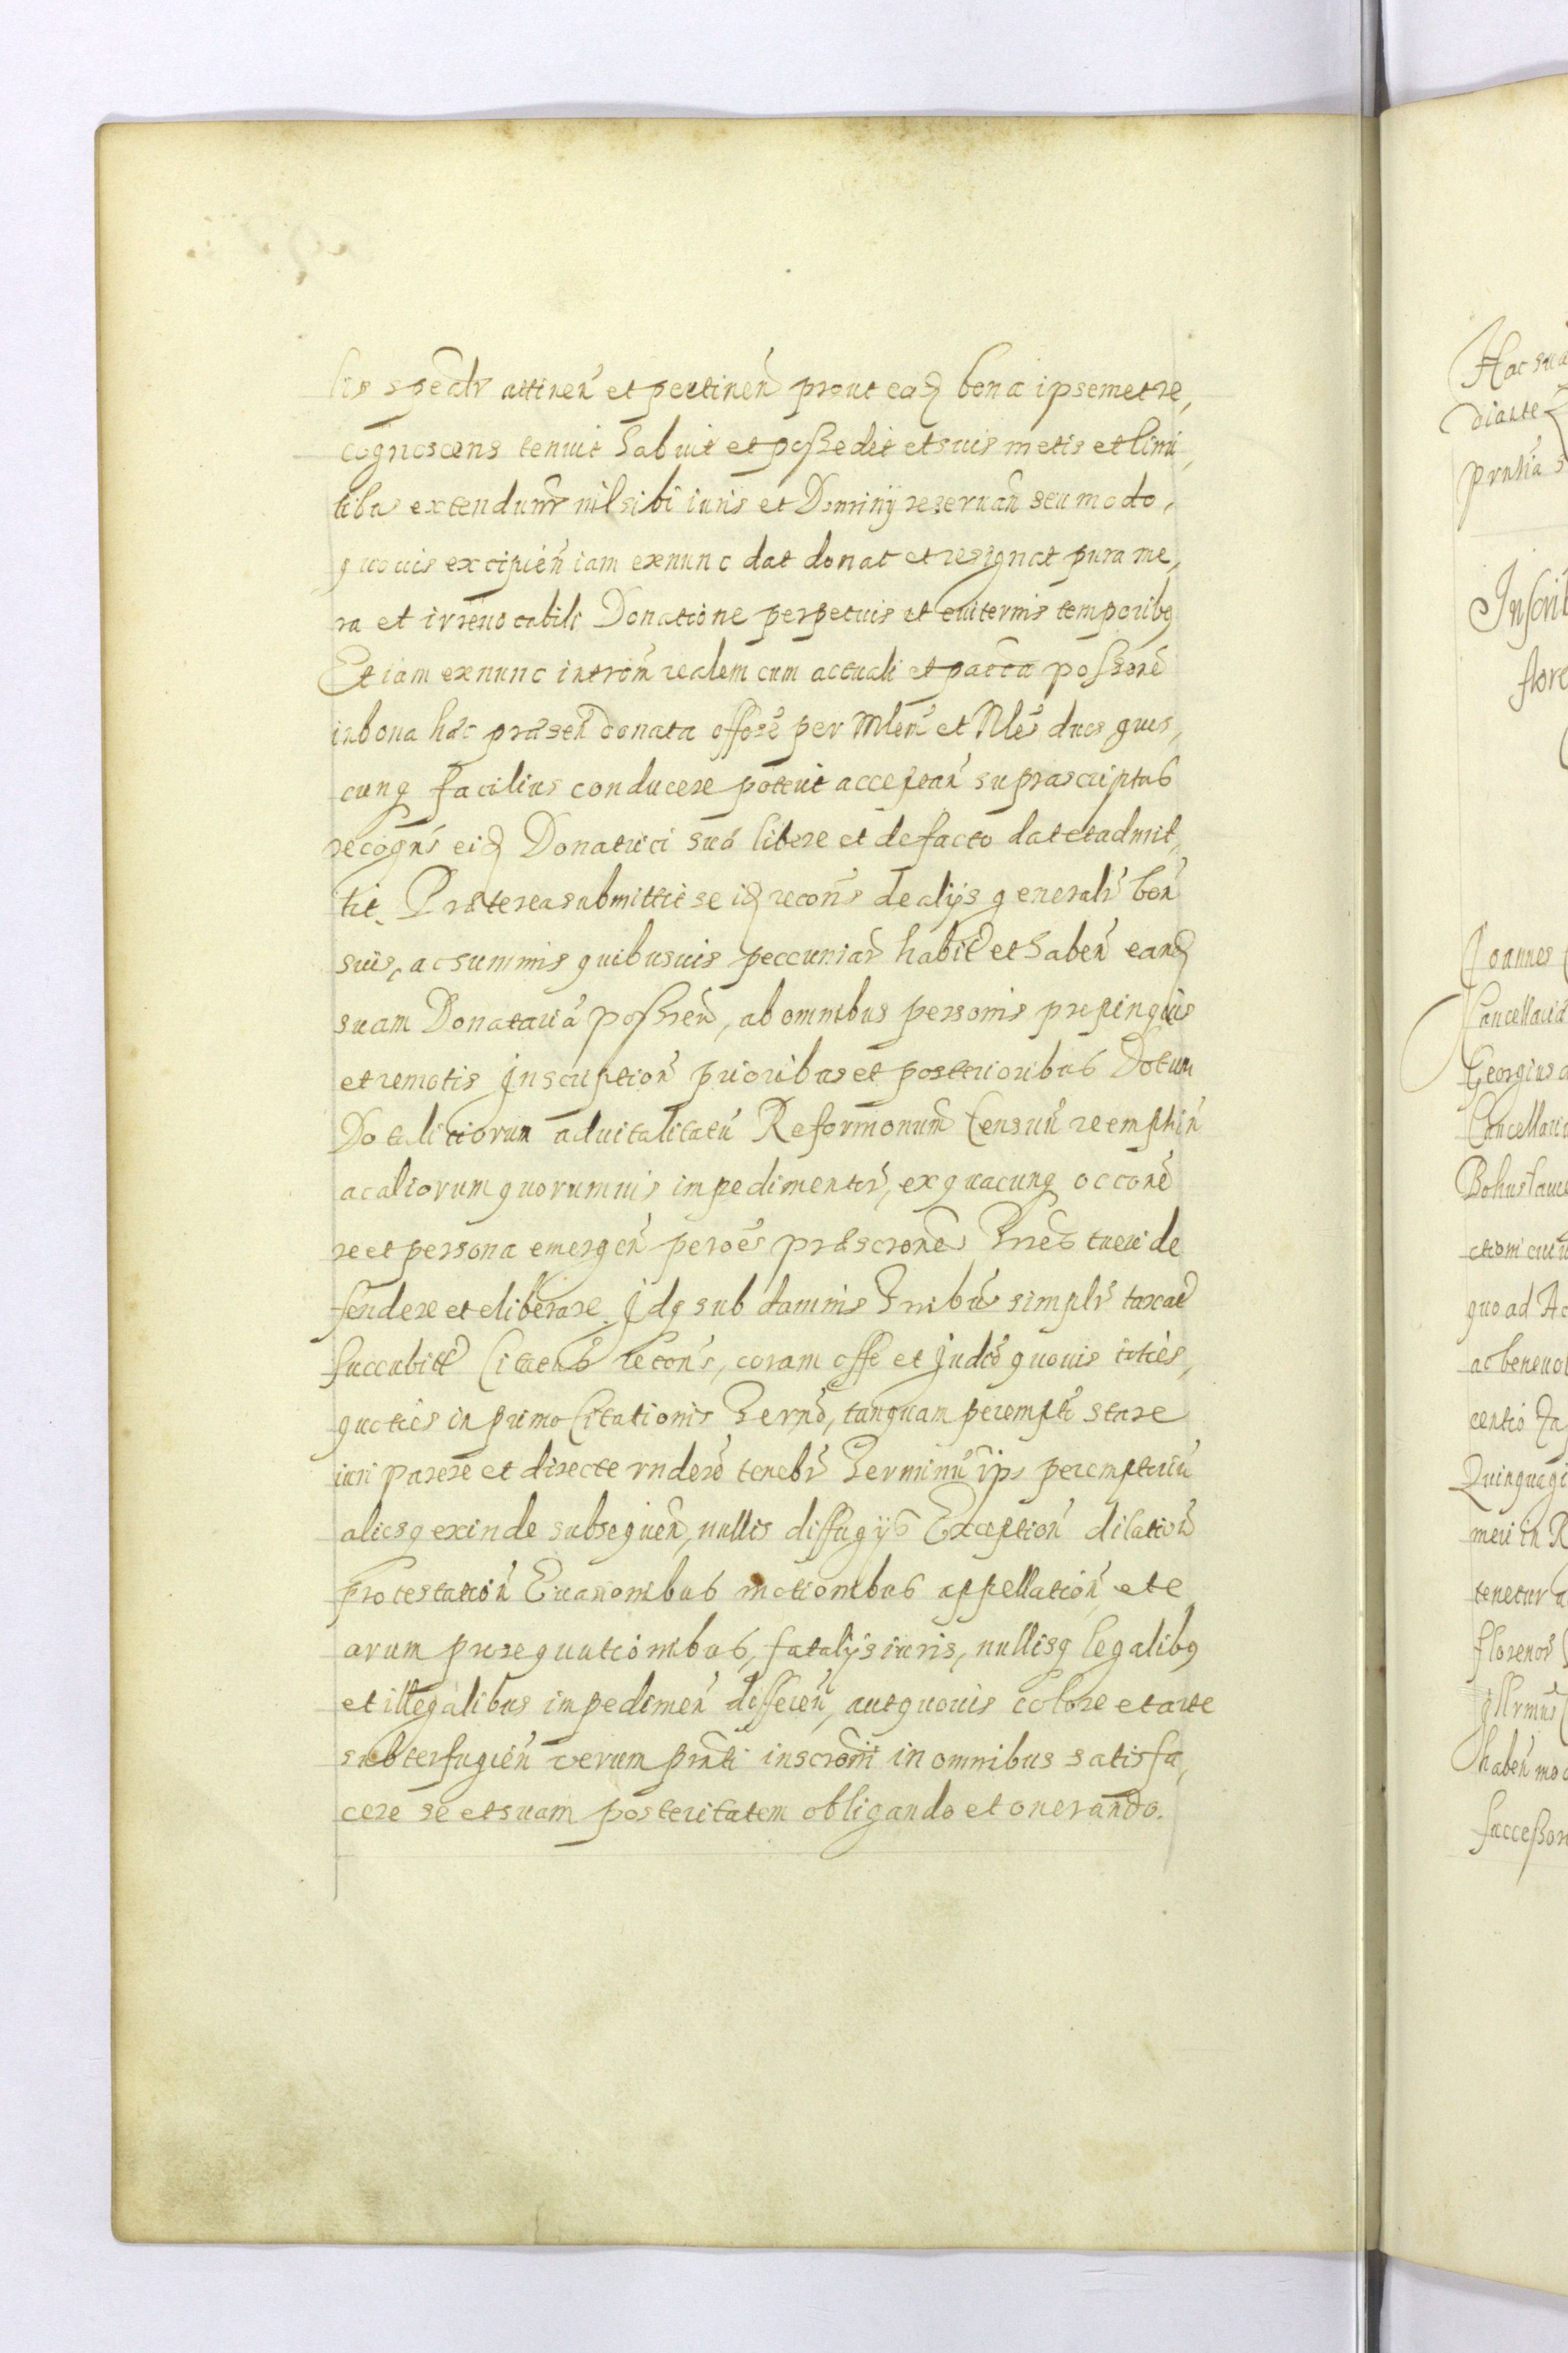 lis spectr attinen et pertinen prout eadē bona ipsemet re,
cognoscens tenuit habuit et possedit et suis metis et limi,
tibus extendunr nil sibi iuris et Dominij reseruan seu modo,
quouis excipien iam ex nunc dat donat et resignat pura me,
ra et irreuocabili Donatione perpetuis et euiternis temporibq
Et iam ex nunc introm realem cum actuali et pacca possione
in bona hac præsen donata offose per Mlem et Nles duos quos,
cunq facilius conducere poterit acceptan suprascriptus
recogns eid Donatrici suæ libere et de facto dat et admit,
tit. Præterea submittit se id recons de alijs generalr bon
suis, ac summis quibusuis peccuniar habit et haben eand
suam Donataria possren, ab omnibus personis propinquis
et remotis Inscription prioribus et posterioribus Dotum
Dotalitiorum aduitalitatu Reformonum Censuu reemption
ac aliorum quorumuis impedimentor, ex quacunq occone
re et persona emergen per oes præscrones Trres tueri de
fendere et eliberare. Idq sub damnis Trribus simplr taxat
succubitt Citatus recons, coram offo et Judio quouis toties,
quoties in primo Citationis Termo, tanquam perempto stare
iuri parere et directe rndere tenebr Terminu ips peremptoriu
aliosq exinde subsequen, nullis diffugijs Exception dilation
protestation Euasionibus motionibus appellation et e
arum prosequutionibus, fatalijs iuris, nullisq legalibq
et illegalibus impedimen differen, aut quouis colore et arte
subterfugien verum prnti inscroni in omnibus satisfa,
cere se et suam posteritatem obligando et onerando.
Hac sua
diante
Inscrib
flore
Joannes
Cancellarid
Georgius
Cancellari
Bohuslaue
ctioni cuiu
quo ad Ac
ac beneuo
centis
Quinquagi
meri in R
tenetur a
florenor
Illrmus
haben mo
successon